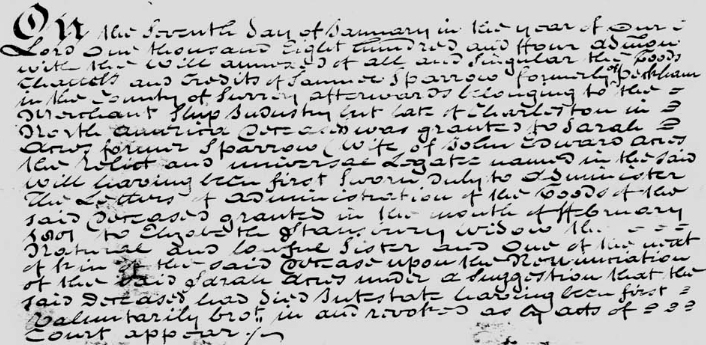 On the Seventh Day of January in the year of Our
Lord One thousand Eight hundred and ffour admon
with the Will annexed of all and Singular the Goods
Chattels and Credits of Samuel Sparrow formerly of Peckham
in the County of Surrey afterwards belonging to the
Merchant Ship Industry but late of Charleston in
North America Deceased was granted to Sarah
Acres former Sparrow (Wife of John Edward Acres
the Relict and universal Legatee named in the said
Will having been first Sworn Duly to Administer
The Letters of administration of the Goods of the
said Deceased granted in the month of ffebruary
1801 to Elizabeth Stansbury Widow the
Natural and lawful Sister and One of the next
of kin of the said Decease upon the Renunciation
of the said Sarah Acres under a Suggestion that the
said Deceased had died Intestate having been first
Voluntarily brot. in and revoked as by acts of
Court appear